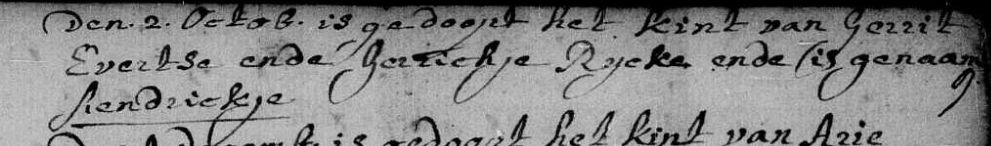 Den. 2. Octob. is gedoopt het kint van Gerrit
Evertse ende Gerrickje Rycke ende is genaam
Hendrickje
is gedoopt het kint van Arie